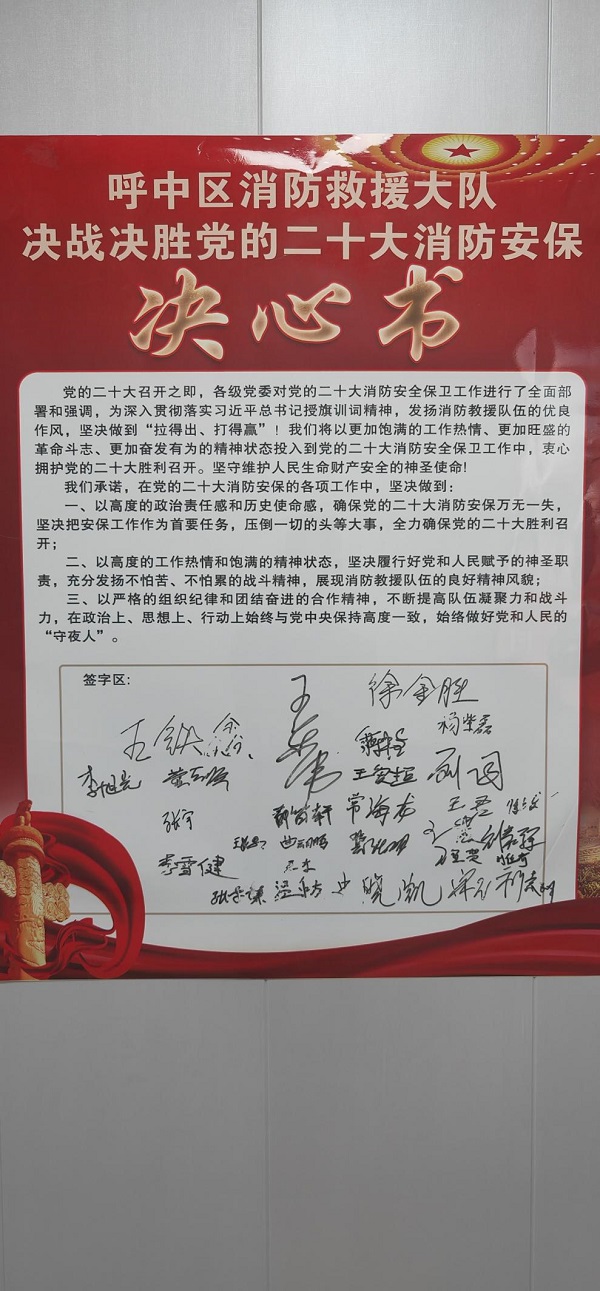 呼中区消防救援大队
决战决胜党的二十大消防安保
决心书
党的二十大召开之即，各级党委对党的二十大消防安全保卫工作进行了全面部
署和强调，为深入贯彻落实习近平总书记授旗训词精神，发扬消防救援队伍的优良
作风，坚决做到“拉得出、打得赢”！我们将以更加饱满的工作热情、更加旺盛的
革命斗志、更加奋发有为的精神状态投入到党的二十大消防安全保卫工作中，衷心
拥护党的二十大胜利召开。坚守维护人民生命财产安全的神圣使命!
我们承诺，在党的二十大消防安保的各项工作中，坚决做到：
一、以高度的政治责任感和历史使命感，确保党的二十大消防安保万无一失，
坚决把安保工作作为首要任务，压倒一切的头等大事，全力确保党的二十大胜利召
开；
二、以高度的工作热情和饱满的精神状态，坚决履行好党和人民赋予的神圣职
责，充分发扬不怕苦、不怕累的战斗精神，展现消防救援队伍的良好精神风貌；
三、以严格的组织纪律和团结奋进的合作精神，不断提高队伍凝聚力和战斗
力，在政治上、思想上、行动上始终与党中央保持高度一致，始络做好党和人民的
“守夜人”。
签字区：
徐金胜
李旭光
张宇
常海龙
王君
李雪健
史晓凯